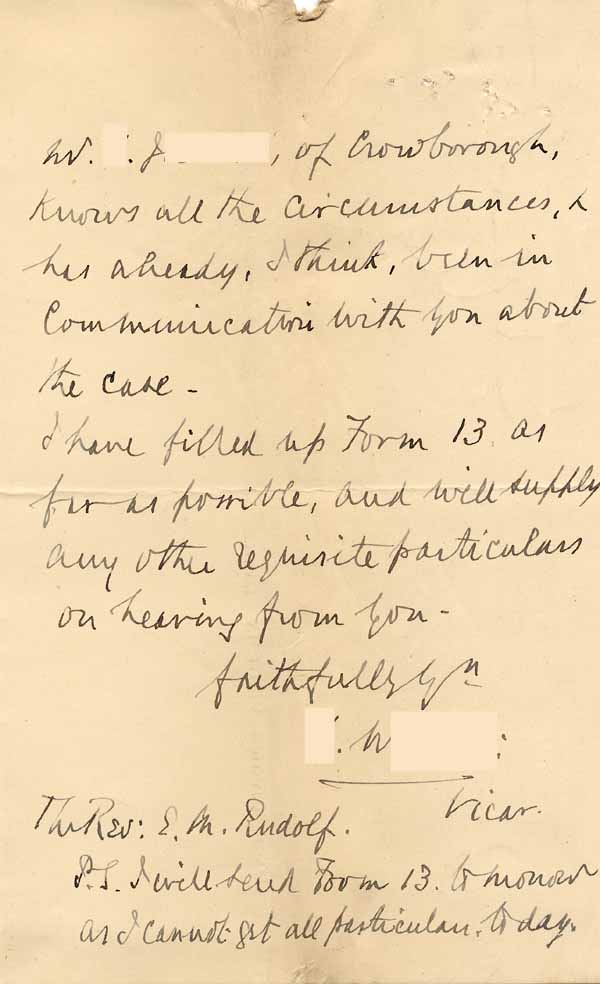 Mr. . J , of Crowborough,
knows all the circumstances, &
has already, I think, been in
communication with you about
the case -
I have filled up Form 13 as
far as possible, and will supply
any other requisite particulars
on hearing from you -
faithfully yrs
. W :
Vicar.
The Rev: E. M. Rudolf.
P.S. I will send Form 13. to morrow
as I cannot get all particulars. to day.